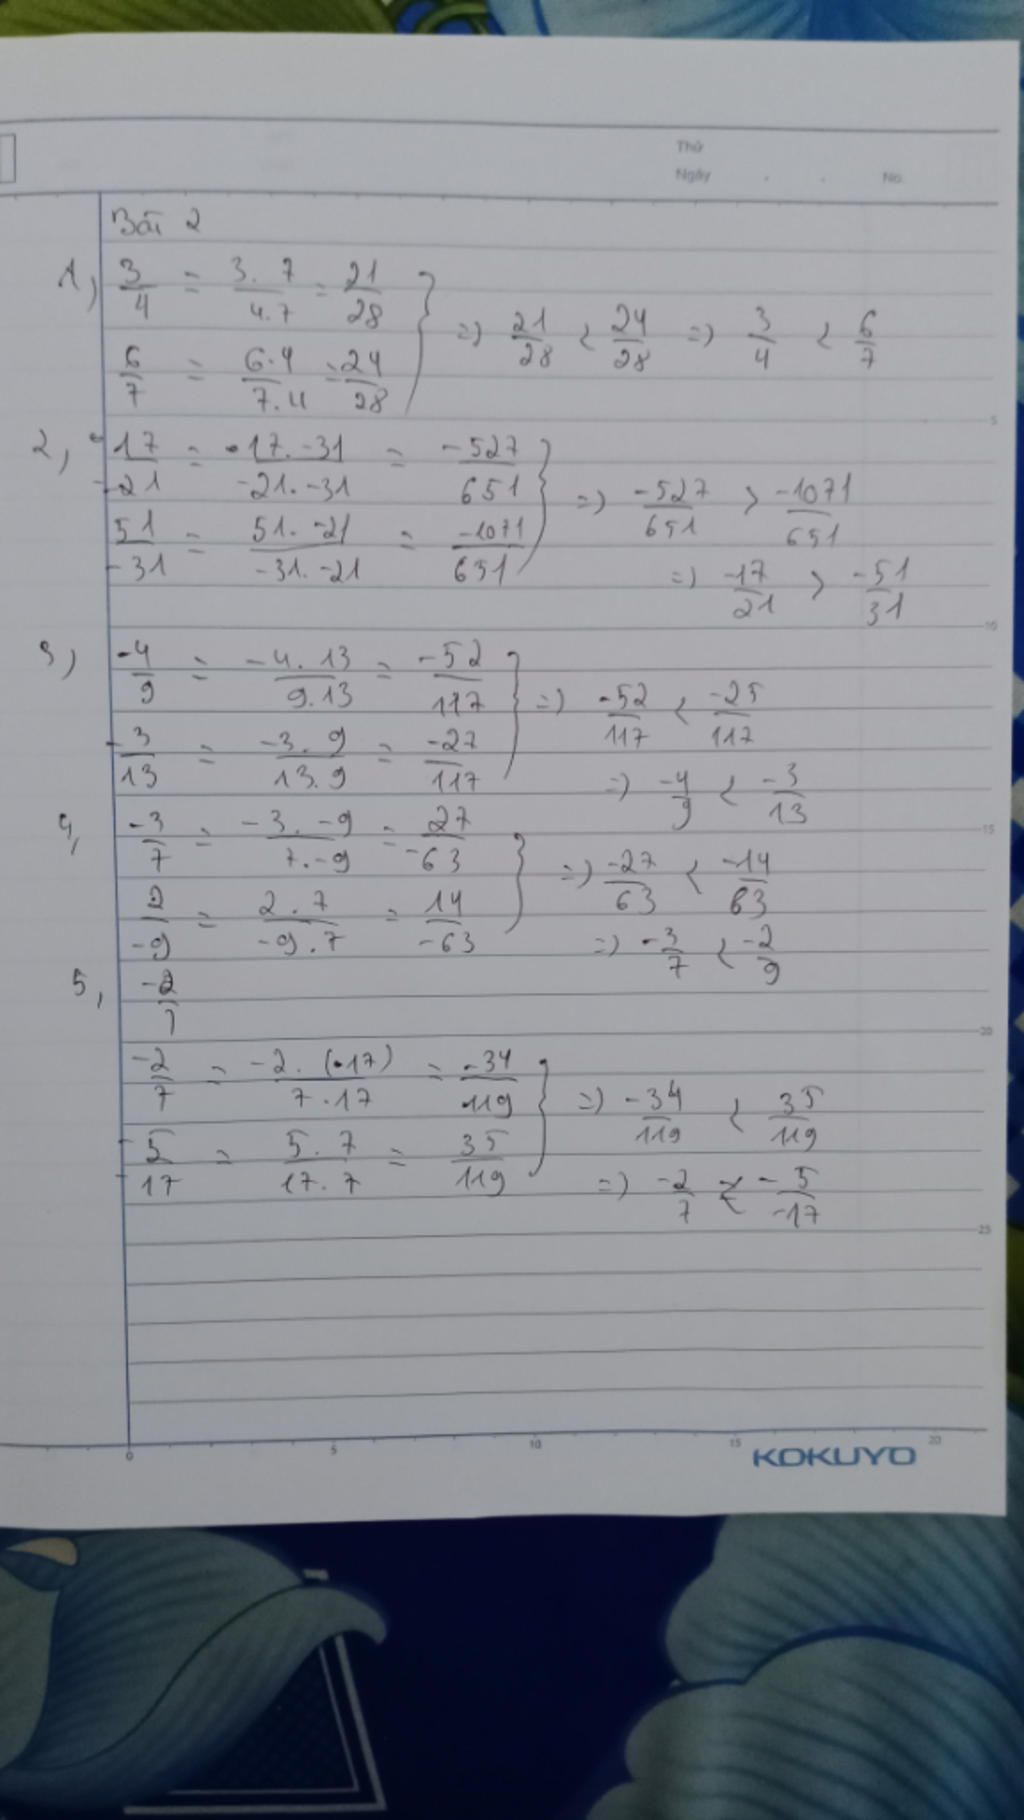 Thứ
Ngày . . No.
Bài 2
1, 3/4 = 3.7/4.7 = 21/28
6/7 = 6.4/7.4 = 24/28 } => 21/28 < 24/28 => 3/4 < 6/7
2, 17/-21 = 17.-31/-21.-31 = -527/651
51/-31 = 51.-21/-31.-21 = -1071/651 } => -527/651 > -1071/651
=> -17/21 > -51/31
3, -4/9 = -4.13/9.13 = -52/117
-3/13 = -3.9/13.9 = -27/117 } => -52/117 < -25/117
=> -4/9 < -3/13
4, -3/7 = -3.-9/7.-9 = 27/-63
2/-9 = 2.7/-9.7 = 14/-63 } => -27/63 < -14/63
=> -3/7 < -2/9
5, -2/7
-2/7 = -2.(17)/7.17 = -34/119
-5/-17 = 5.7/17.7 = 35/119 } => -34/119 < 35/119
=> -2/7 < -5/-17
5
10
15
20
25
0 5 10 15 20
KOKUYO